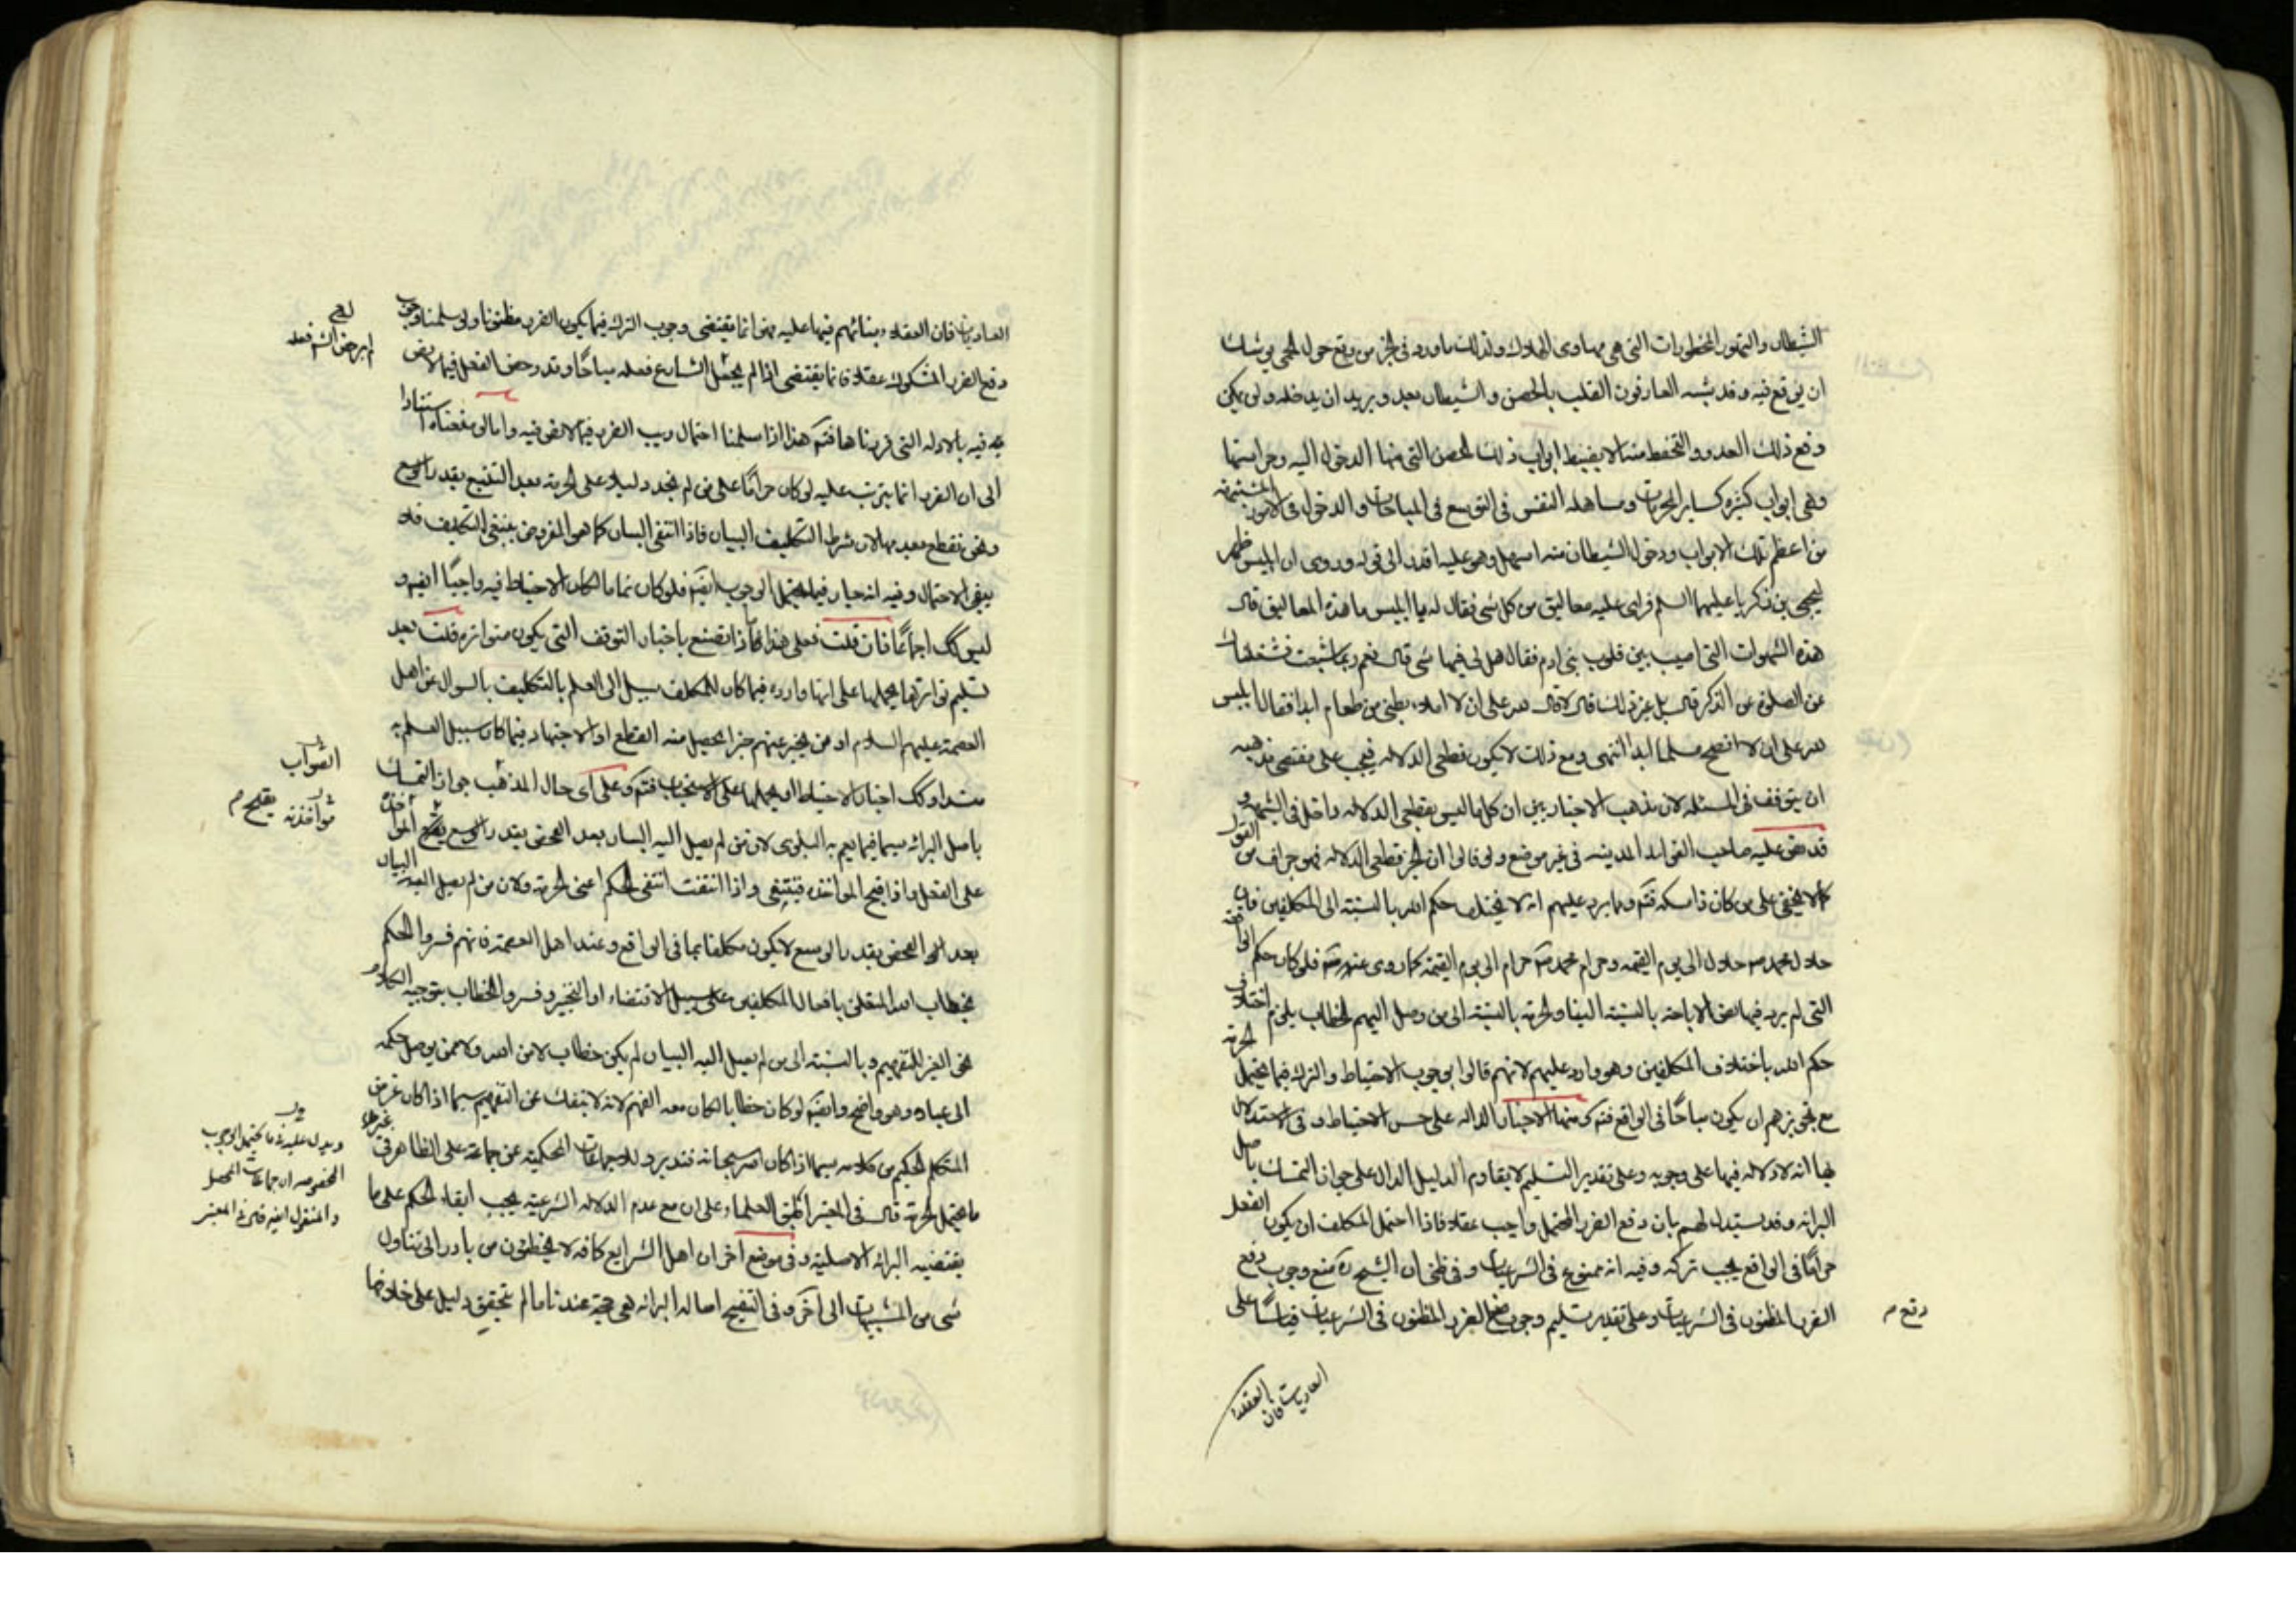 الشيطان والتهور المحظورات التى هى مهاوى الهلاك ولذلك ما ورد فى الخبر من وقع حول الحمى يوشك
ان يوقع فيه وقد يشبه العارفون القلب بالحصن والشيطان بعيد ويريد ان يدخله ولن يمكن
دفع ذلك العدو والتحفظ منه الا بضبط ابواب ذلك الحصن التى منها الدخول اليه وحراستها
وهى ابواب كثيرة كساير المحرمات ومساهلة النفس فى التوسع فى المباحات والدخول فى الامور المشتبهة
من اعظم تلك الابواب ودخول الشيطان منه اسهل وهو عليه اقدر الى قوله وروى ان ابليس ظهر
ليحيى بن زكريا عليهما السلم فراى عليه معاليق من كل شى فقال له يا ابليس ما هذه المعاليق قال
هذه الشهوات التى اصيب بهن قلوب بنى ادم فقال هل لى فيها شى قال نعم ربما شبعت فشغلناك
عن الصلوة عن الذكر قال هل غير ذلك قال لا قال لله على ان لا املاء بطنى من طعام ابدا فقال ابليس
لله على ان لا انصح مسلما ابدا انتهى ومع ذلك لا يكون قطعى الدلالة فيجب على مقتضى مذهبه
ان يتوقف فى المسئلة لان مذهب الاخباريين ان كل ما ليس بقطعى الدلالة داخل فى الشبهة و
قد نص عليه صاحب الفوايد المدينة فى غير موضع ولو قالوا ان الخبر قطعى الدلالة فهو جزاف من القول
كما لا يخفى على من كان ذا مسكة فتم ومما يرد عليهم انه لا يختلف حكم الله بالنسبة الى المكلفين فان
حلال محمد ص حلال الى يوم القيمة وحرام محمد ص حرام الى يوم القيمة كما روى عنهم فلو كان حكم الواقعة
التى لم يرد فيها نص الاباحة بالنسبة الينا والحرمة بالنسبة الى من وصل اليهم الخطاب يلزم اختلاف
حكم الله باختلاف المكلفين وهو وارد عليهم لانهم قالوا بوجوب الاحتياط والترك فيما يحتمل الحرمة
مع تجويزهم ان يكون مباحًا فى الواقع فتم ك منها الاخبار الدالة على حسن الاحتياط وفى الاستدلال
بها انه لا دلالة فيها على وجوبه وعلى تقدير التسليم لا يقاوم الدليل الدال على جواز التمسك باصل
البرائة وقد يستدل لهم بان دفع الضرر المحتمل واجب عقلا فاذا احتمل المكلف ان يكون الفعل
حرامًا فى الواقع يجب تركه وفيه انه ممنوع فى الشرعيات وفى ظنى ان الشيخ ره منع وجوب دفع
الضرر المظنون فى الشرعيات وعلى تقدير تسليم وجوب الضرر المظنون فى الشرعيات قياسًا على
دفع م
العاديات فان العقلاء
العاديات فان العقلاء وبنائهم فيها عليه فهو انما يقتضى وجوب الترك فيما يكون الضرر مظنونا ولو سلمنا وجوب
دفع الضرر المشكوك عقلا فانما يقتضى اذا لم يجعل الشارع فعله مباحًا وقد رخص الفعل فيما لا نص
فيه بالادلة التى قررناها فتم هذا اذا سلمنا احتمال ريب الضرر فيما لا نص فيه واما لو منعناه استنادا
الى ان الضرر انما يترتب عليه لو كان حرامًا على من لم يجد دليلا على الحرمة بعد التتبع بقدر الوسع
ونحن نقطع بعدمها لان شرط التكليف البيان فاذا انتفى البيان كما هو المفروض ينتفى التكليف فلا
يبقى الاحتمال وفيه انه جار فيما يحتمل الوجوب ايضا فلو كان تماما لكان الاحتياط فيه واجبًا ايضا و
ليس كك اجماعًا فان قلت فعلى هذا ماذا تصنع باخبار التوقف التى يكون متواترة قلت بعد
تسليم تواترها يحملها على انها واردة فيما كان للمكلف سبيل الى العلم بالتكليف بالسوال عن اهل
العصمة عليهم السلام او من يخبر عنهم خبرا يحصل منه القطع او الاجتهاد فيما كان سبيل العلم به
منسدا وكك اخبار الاحتياط او يحملها على الاستحباب فتم وعلى اى حال المذهب جواز التمسك
باصل البرائة سيما فيما يعم به البلوى لان من لم يصل اليه البيان بعد الفحص بقدر الوسع يقبح المواخذة
على الفعل واذا قبح المواخذة فينتفى واذا انتفت انتفى الحكم اعنى الحرمة ولان من لم يصل اليه البيان
بعد الفحص بقدر الوسع لا يكون مكلفا بما فى الواقع وعند اهل العصمة فانهم فسروا الحكم
بخطاب الله المتعلق بافعال المكلفين على سبيل الاقتضاء او التخيير وفسروا الخطاب بتوجيه الكلام
نحو الغير للتفهيم وبالنسبة الى من لم يصل اليه البيان لم يكن خطاب لا من الله ولا ممن يوصل حكمه
الى عباده وهو واضح وايضا لو كان خطابا لكان معه الفهم لانه لا ينفك عن التفهيم سيما اذا كان غرض
المتكلم الحكيم من كلامه سيما اذا كان الله سبحانه فتدبر وللاجماعات المحكية عن جماعة على الظاهر فى
ما يحتمل الحرمة قال فى المعتبر اطبق العلماء على ان مع عدم الدلالة الشرعية يجب ابقاء الحكم على ما
يقتضيه البرائة الاصلية وفى موضع اخر ان اهل الشرايع كافة لا يخطئون من بادر الى تناول
شى من المشتبهات الى اخره وفى التنقيح اصالة البرائة هى حجة عندنا ما لم يتحقق دليل على خلافها
الثواب
مواخذته يقبح م
ويدل عليه فى ما يحتمل الوجوب
المخصوصة اجماعات المحصل
والمنقول ايضا قال فى المعتبر